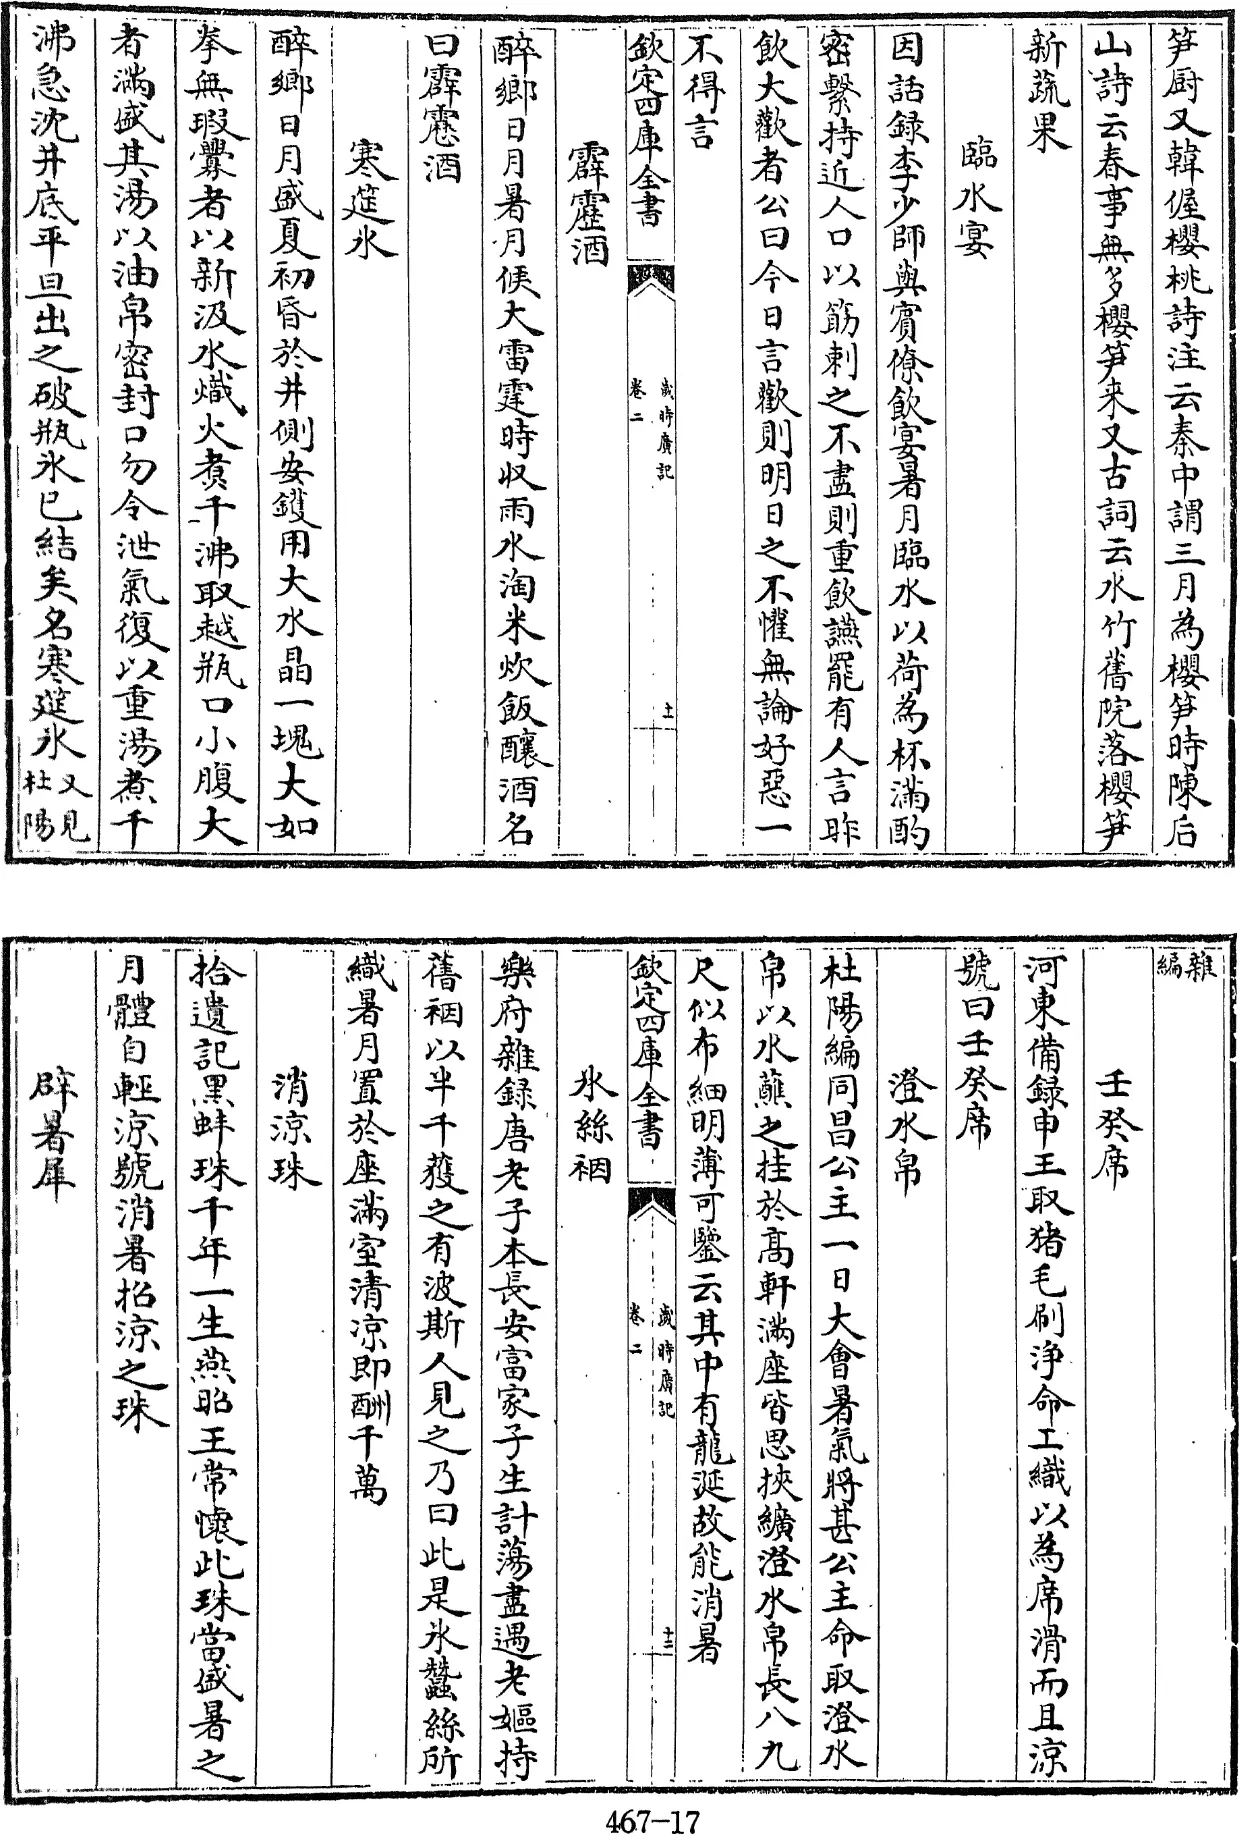 笋厨又韓偓櫻桃詩注云秦中謂三月為櫻笋時陳后
山詩云春事無多櫻笋来又古詞云水竹舊院落櫻笋
新蔬果
臨水宴
因話録李少師與賓僚飲宴暑月臨水以荷為杯滿酌
密繫持近人口以筯刺之不盡則重飲讌罷有人言昨
飲大歡者公曰今日言歡則明日之不懽無論好惡一
不得言
欽定四庫全書
歲時廣記
卷二
十一
霹靂酒
醉鄉日月暑月俟大雷霆時収雨水淘米炊飯釀酒名
曰霹靂酒
寒筵氷
醉鄉日月盛夏初昏於井側安鑊用大水晶一塊大如
拳無瑕釁者以新汲水熾火煮千沸取越瓶口小腹大
者滿盛其湯以油帛密封口勿令泄氣復以重湯煮千
沸急沈井底平旦出之破瓶氷已結矣名寒筵氷又見
杜陽
雜
編
壬癸席
河東備録申王取猪毛刷浄命工織以為席滑而且涼
號曰壬癸席
澄水帛
杜陽編同昌公主一日大會暑氣將甚公主命取澄水
帛以水蘸之挂於高軒滿座皆思挾纊澄水帛長八九
尺似布細明薄可鑒云其中有龍涎故能消暑
欽定四庫全書
歲時廣記
卷二
十二
氷絲裀
樂府雜録唐老子本長安富家子生計蕩盡遇老嫗持
舊裀以半千獲之有波斯人見之乃曰此是氷蠶絲所
織暑月置於座滿室清涼即酬千萬
消涼珠
拾遺記黑蚌珠千年一生燕昭王常懷此珠當盛暑之
月體自輕涼號消暑招涼之珠
辟暑犀
467-17